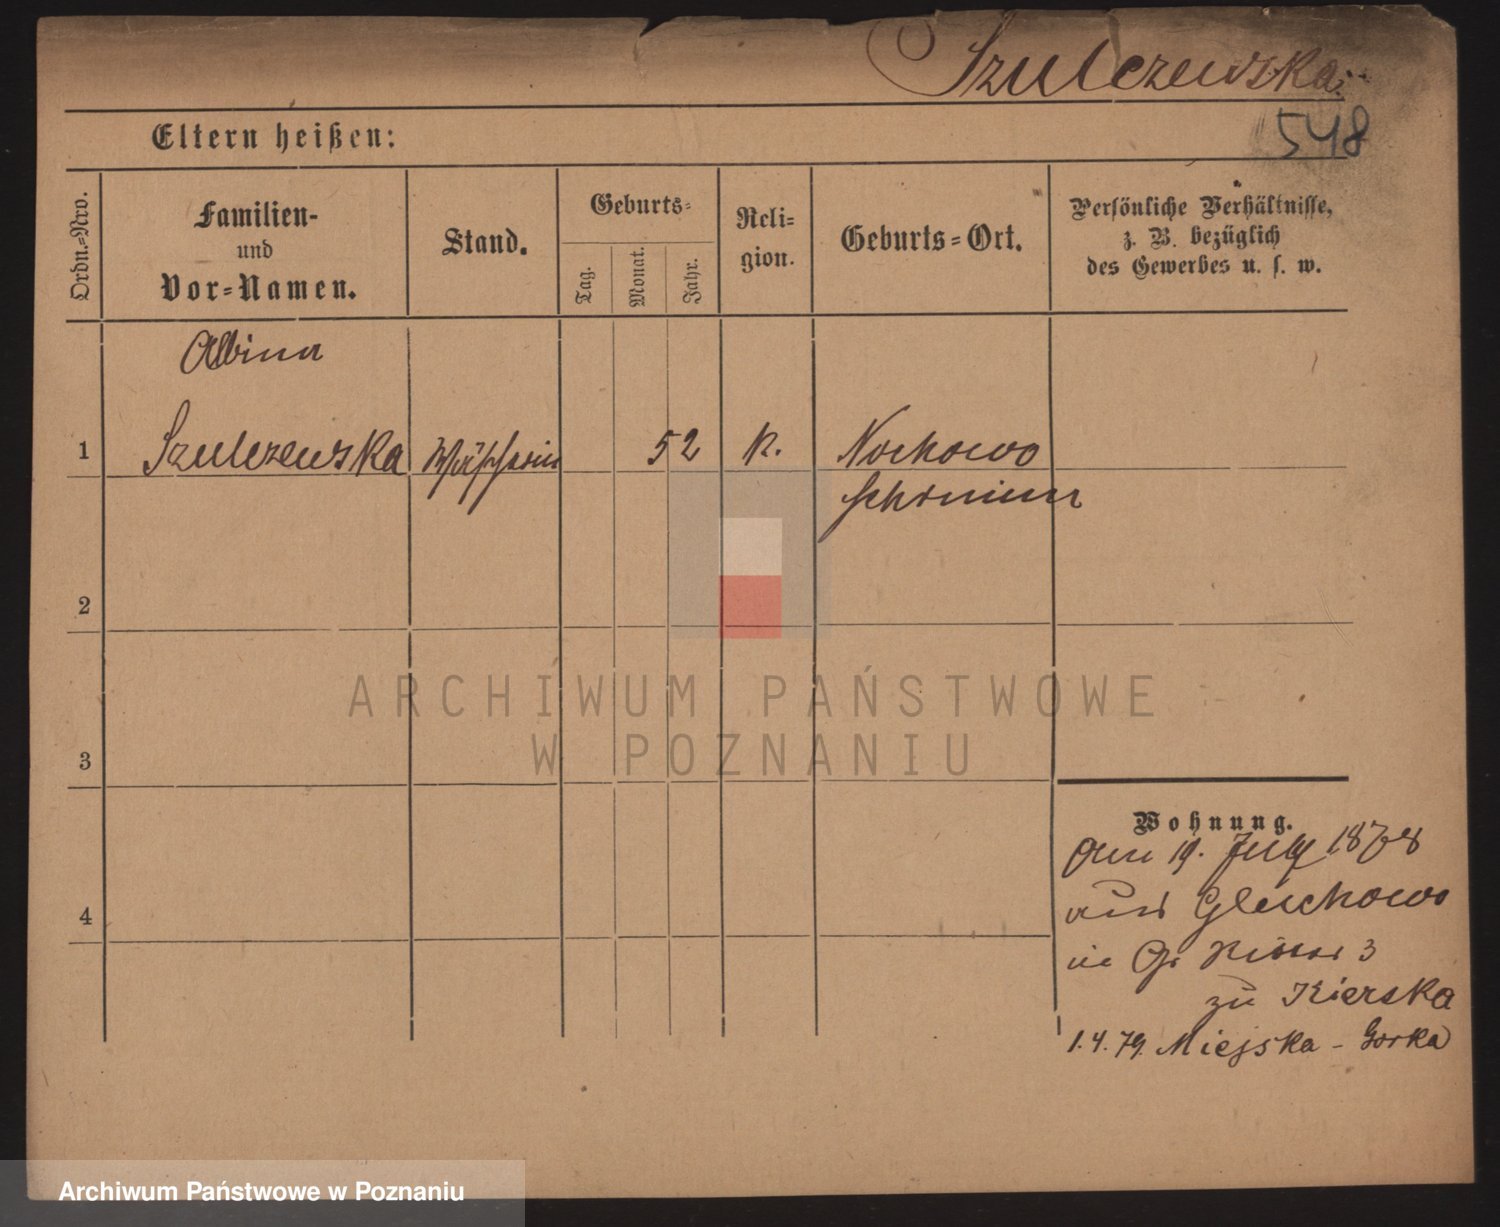 Szulczewska.
548
Eltern heißen:
Ordn.-Nro.
Familien-
und
Vor-Namen.
Stand.
Geburts-
Tag.
Monat.
Jahr.
Reli-
gion.
Geburts-Ort.
Persönliche Verhältnisse,
z. B. bezüglich
des Gewerbes u. s. w.
Albina
1 Szulczewska 52 k. Nochowo
Schrimm
2
3
4
Wohnung.
Am 19. July 1878
aus Gluchowo
in Gr Ritter 3
zu Kierska
1.4.79. Miejska - Gorka
ARCHIWUM PAŃSTWOWE
W POZNANIU
Archiwum Państwowe w Poznaniu